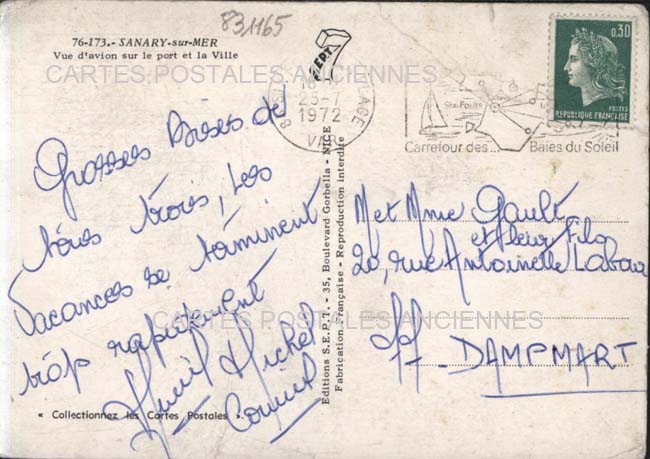 831165
76-173.- SANARY-sur-MER
Vue d'avion sur le port et la Ville
CARTES POSTALES ANCIENNES
Grosses Bises de
tous trois, Les
Vacances se terminent
trop rapidement
Michel
« Collectionnez les Cartes Postales »
SEPT
25-7
1972
VAR
Six-Fours
Carrefour des... Baies du Soleil
0,30
POSTES
REPUBLIQUE FRANÇAISE
Editions S.E.P.T. - 35, Boulevard Gorbella - NICE
Fabrication Française - Reproduction interdite
M et Mme Gault
et leur fils
20, rue Antoinelle
77 - DAMPMART
CARTES POSTALES ANCIENNES